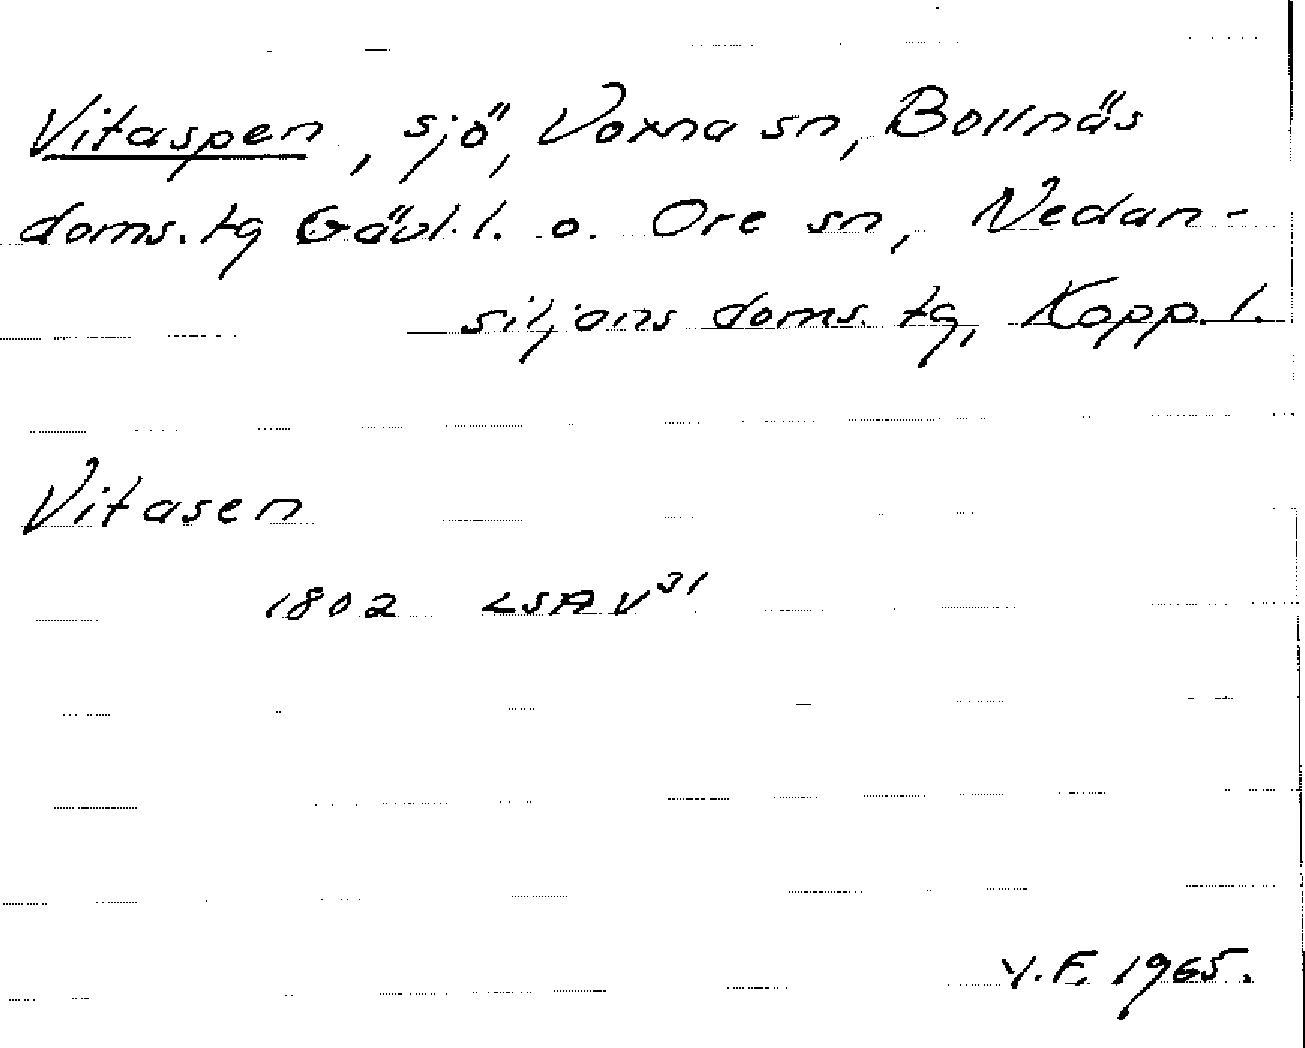 Vitaspen, sjö, Voxna sn, Bollnäs
doms.tg Gävl.l. o. Ore sn, Nedan-
siljans doms. tg, Kopp. l.
Vitasen
1802 LSA V³¹
Y.F. 1965.